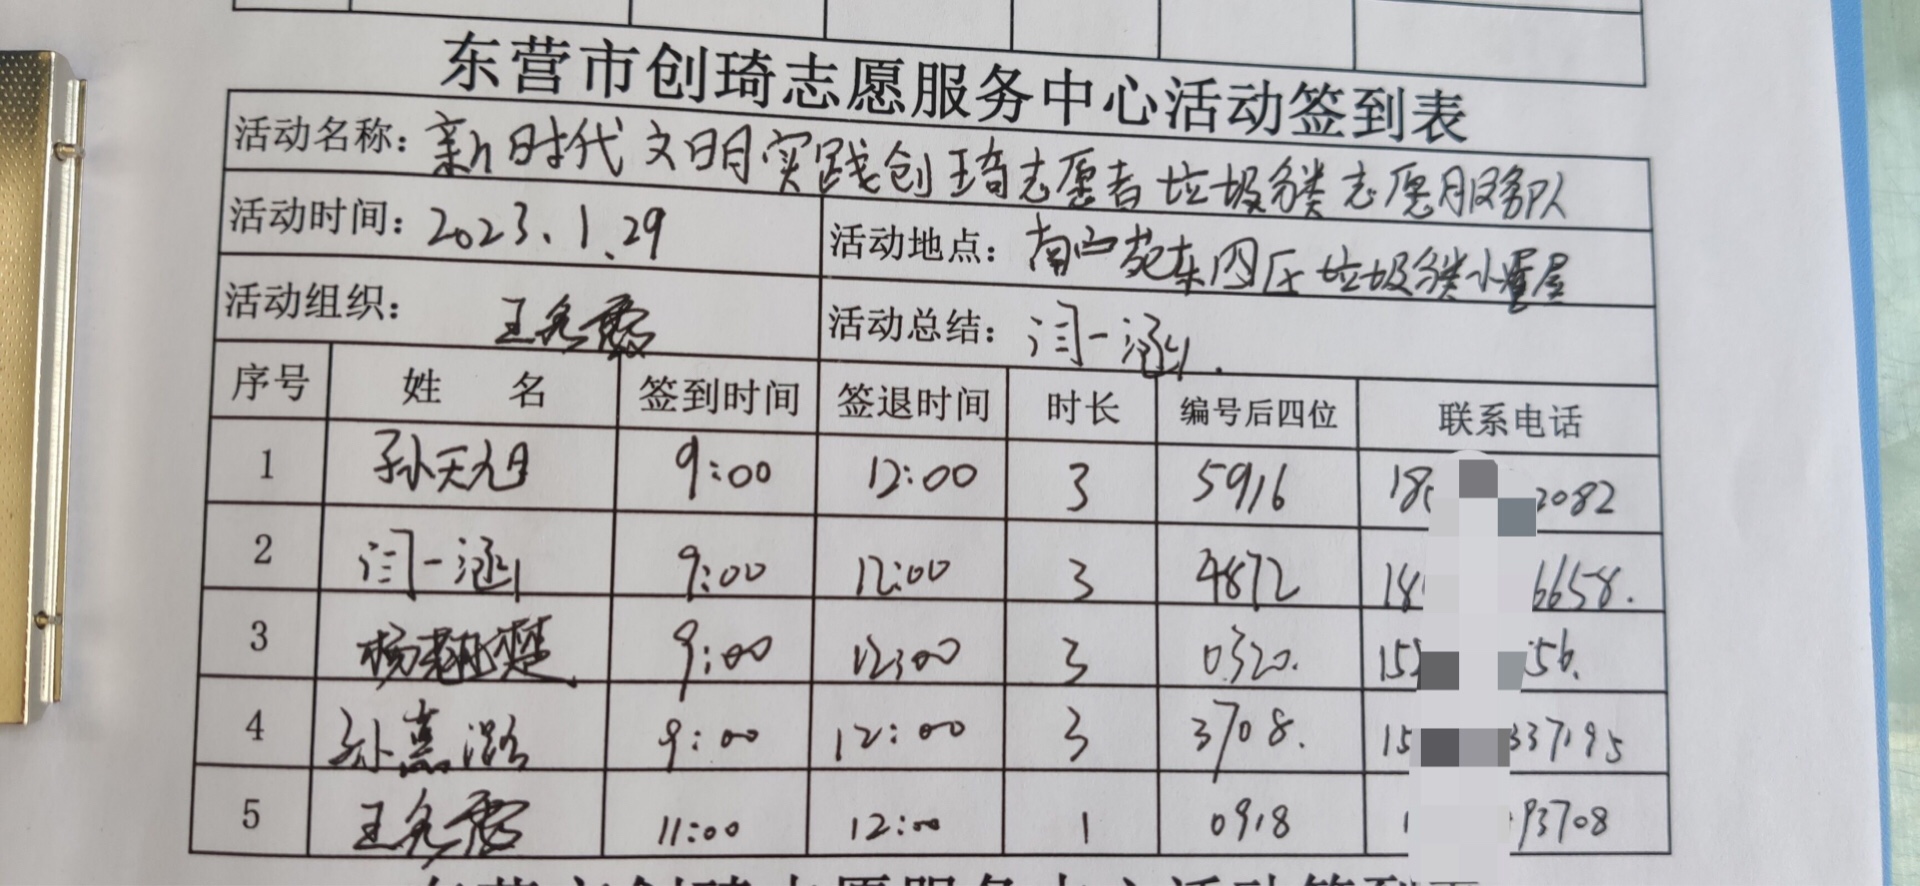 东营市创琦志愿服务中心活动签到表
活动名称：新时代文明实践创琦志愿者垃圾分类志愿服务队
活动时间：2023.1.29 活动地点：南山苑东四区垃圾分类小屋
活动组织：王 活动总结：闫一涵.
序号 姓 名 签到时间 签退时间 时长 编号后四位 联系电话
1 孙天 9:00 12:00 3 5916 18 2082
2 闫一涵 9:00 12:00 3 4872 18 6658.
3 杨 楚 9:00 12:00 3 0320. 15 56.
4 孙 潞 9:00 12:00 3 3708. 15 37195
5 王 11:00 12:00 1 0918 1 93708